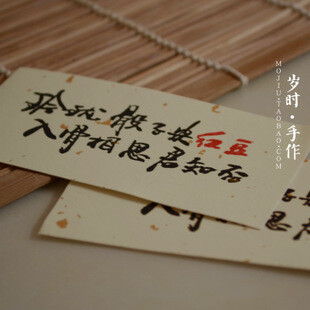 玲珑骰子安红豆
入骨相思君知否
入骨相思君
岁时·手作
MOJIU·TAOBAO.COM